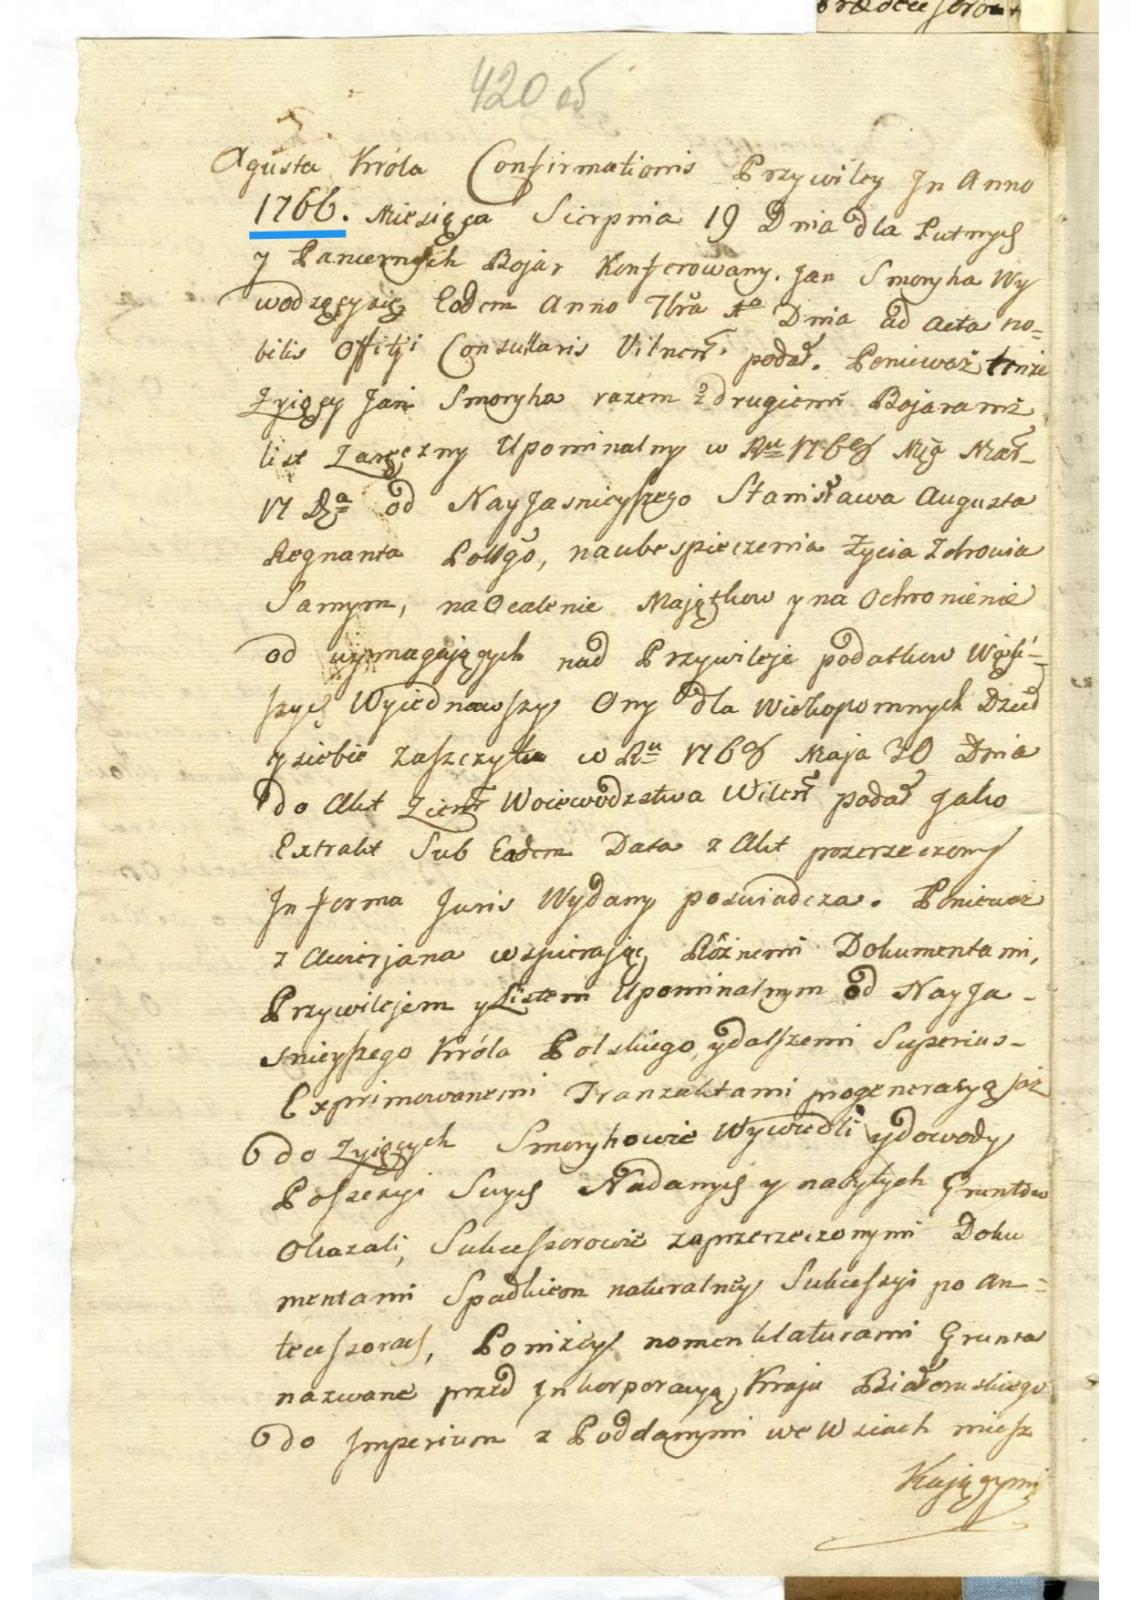 420 об
Agusta Króla Confirmationis Przywiley Jn Anno
1766. Miesięca Sierpnia 19 Dnia dla Putnych
y Pancernych Bojar Konferowany. Jan Smoryha Wy
wodzącysię Eodem Anno 7bra Dnia ad acta no-
bilis Offitij Consularis Vilnen. podał. Ponieważ tenże
Żyiący Jan Smoryha razem z drugiemi Bojarami
list Zaręczny Upominalny w Ru 1768 Mca Mar.
17 Da od Nayjasnieyszego Stanisława Augusta
Regnanta Polgo, naubespieczenia Życia Zdrowia
Samym, na Ocalenie Majątkow y na Ochronienie
od wymagaiących nad Przywileje podatkow
szych Wyiednawszy Ony dla Wiekopomnych Dzieł
y siebie Zaszczytu w Ru 1768 Maja 30 Dnia
do Akt Ziem Woiewodztwa Wilen podał jako
Extrakt Sub Eadem Data z Akt przerzeczony
Jn forma Juris Wydany poswiadcza. Ponieważ
z Awerjana wspierając Różnemi Dokumentami,
Przywilejem y Listem Upominalnym od Nayja-
snieyszego Króla Polskiego, y dalszemi Superius-
Exprimowanemi Tranzaktami progeneracyą już
do Żyiących Smoryhowie Wywiedli y dowody
Possesyi Swych Nadanych y nabytych Gruntow
Okazali, Sukcessorowie zaprzerzeczonymi Doku
mentami Spadkiem naturalney Sukcessyi po An-
tecessorach, Poniżey nomenklaturami Grunta
nazwane przed Jnkorporacyą Kraju Białoruskiego
do Jmperium z Poddanymi we Wsiach miesz
Kającymi